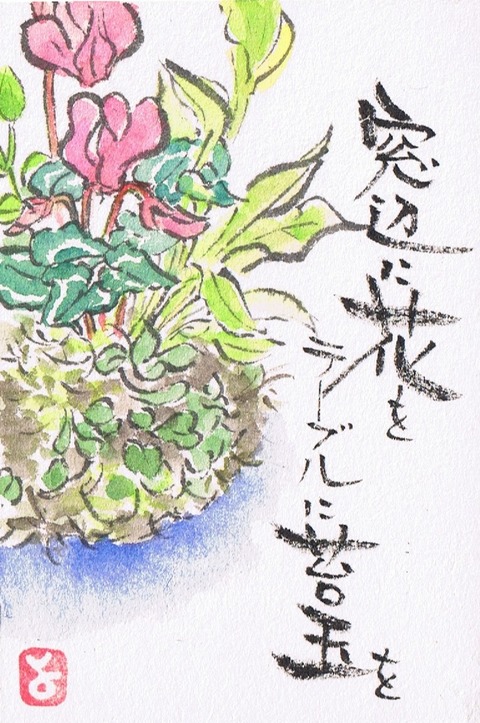 窓辺に花を
テーブルに苔玉を
と